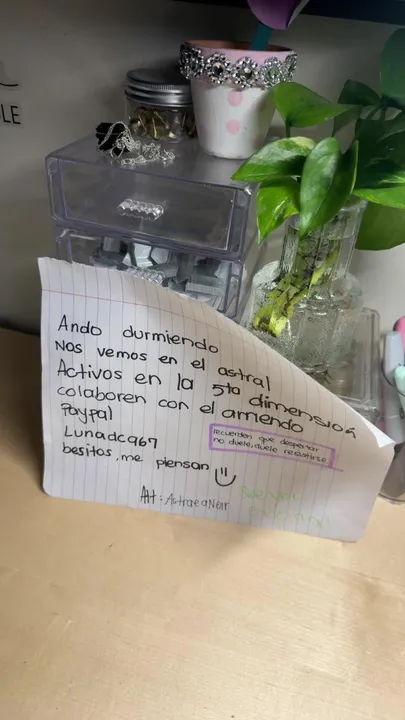 LE
Ando durmiendo
Nos vemos en el astral
Activos en la 5ta dimensión
colaboren con el arriendo
Paypal
Lunadca67
recuerden que despertar
no duele, duele resistirse
besitos, me piensan
Att: AstraeaNeir